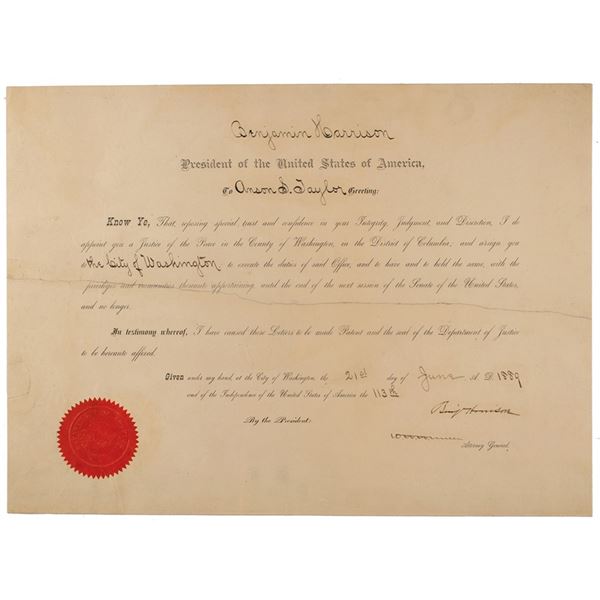 Benjamin Harrison
President of the United States of America,
To Anson S. Taylor Greeting:
Know Ye, That, reposing special trust and confidence in your Integrity, Judgment, and Discretion, I do
appoint you a Justice of the Peace in the County of Washington, in the District of Columbia; and assign you
to the City of Washington to execute the duties of said Office, and to have and to hold the same, with the
privileges and immunities thereunto appertaining, until the end of the next session of the Senate of the United States,
and no longer.
In testimony whereof, I have caused these Letters to be made Patent and the seal of the Department of Justice
to be hereunto affixed.
Given under my hand, at the City of Washington, the 21st day of June A. D. 1889
and of the Independence of the United States of America the 113th
Benj Harrison
By the President:
Attorney General.